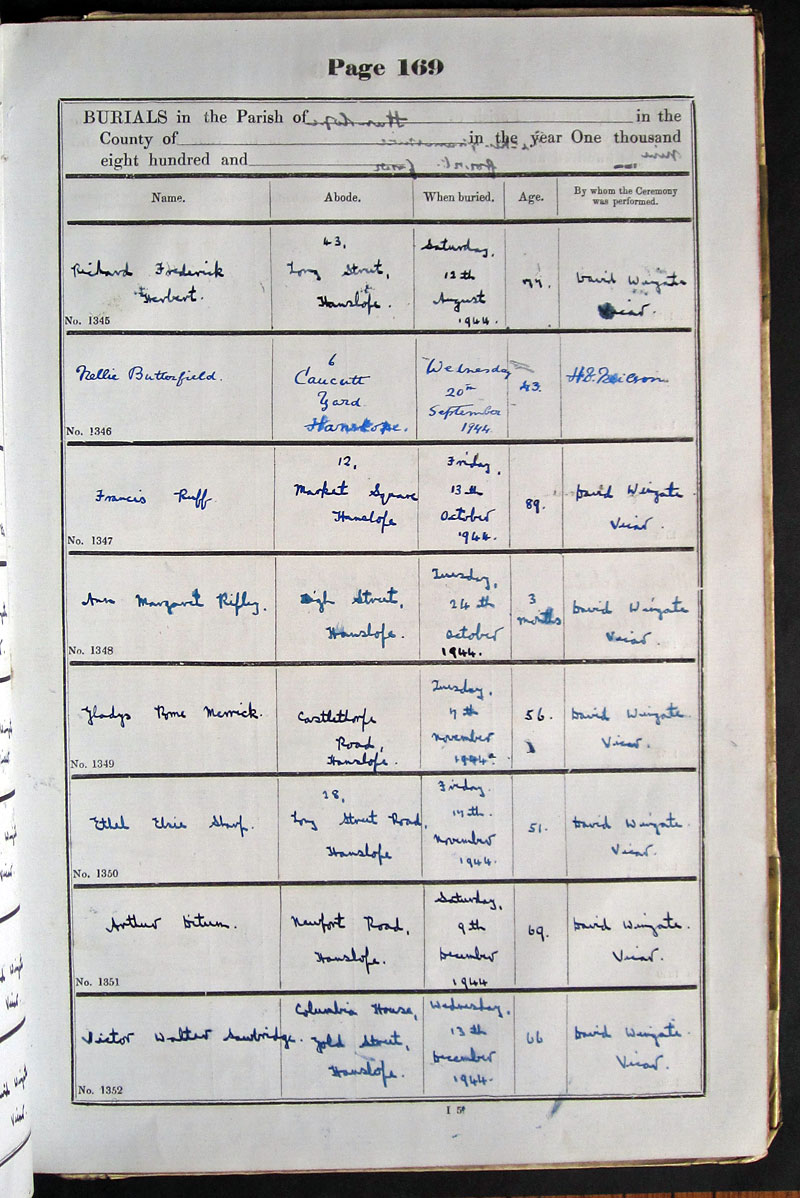 Page 169
BURIALS in the Parish of Hanslope in the
County of in the year One thousand
eight hundred and
Name. Abode. When buried. Age. By whom the Ceremony was performed.
Richard Frederick Herbert.
No. 1345
43,
Long Street,
Hanslope.
Saturday,
12th
August
1944.
77.
David Wingate
Vicar.
Nellie Butterfield.
No. 1346
6
Caucutt
Yard
Hanslope.
Wednesday
20th
September
1944
43.
Francis Ruff
No. 1347
12,
Market Square
Hanslope
Friday,
13th
October
1944.
89.
David Wingate
Vicar.
Ann Margaret Ripley.
No. 1348
High Street,
Hanslope.
Tuesday,
24th
October
1944.
3
months
David Wingate
Vicar.
Gladys Rome Merrick.
No. 1349
Castlethorpe
Road,
Hanslope.
Tuesday,
7th
November
1944.
56.
David Wingate.
Vicar.
Ethel Elsie Sharp.
No. 1350
Long Street Road,
Hanslope
Friday.
17th.
November
1944.
51.
David Wingate.
Vicar.
Arthur
No. 1351
Newport Road,
Hanslope.
Saturday,
9th
December
1944
69.
David Wingate.
Vicar.
Victor Walter Sawbridge.
No. 1352
Columbia House,
Gold Street,
Hanslope.
Wednesday,
13th
December
1944.
66
David Wingate.
Vicar.